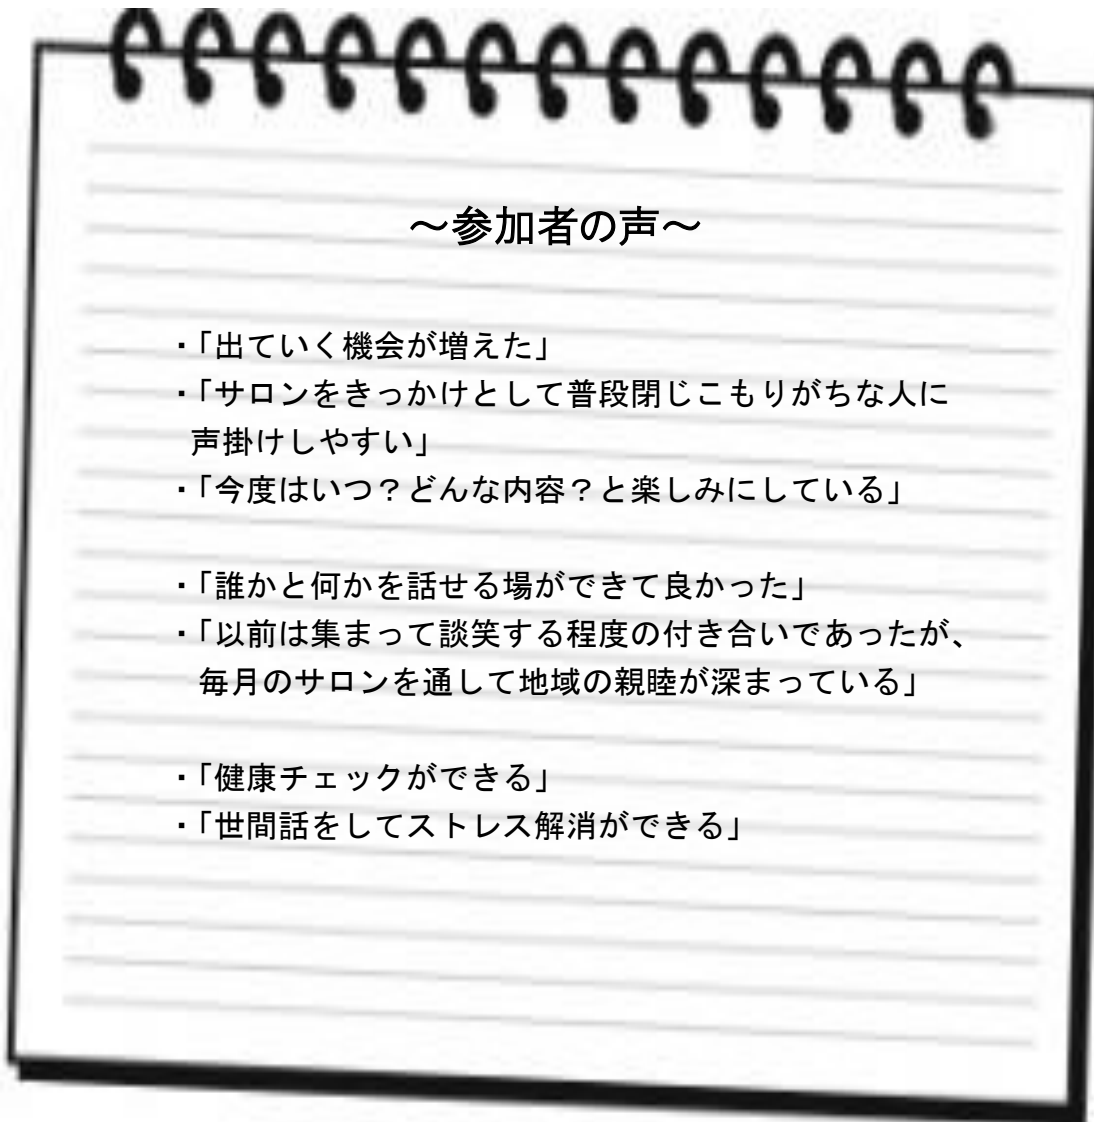 ～参加者の声～
・「出ていく機会が増えた」
・「サロンをきっかけとして普段閉じこもりがちな人に
声掛けしやすい」
・「今度はいつ？どんな内容？と楽しみにしている」
・「誰かと何かを話せる場ができて良かった」
・「以前は集まって談笑する程度の付き合いであったが、
毎月のサロンを通して地域の親睦が深まっている」
・「健康チェックができる」
・「世間話をしてストレス解消ができる」